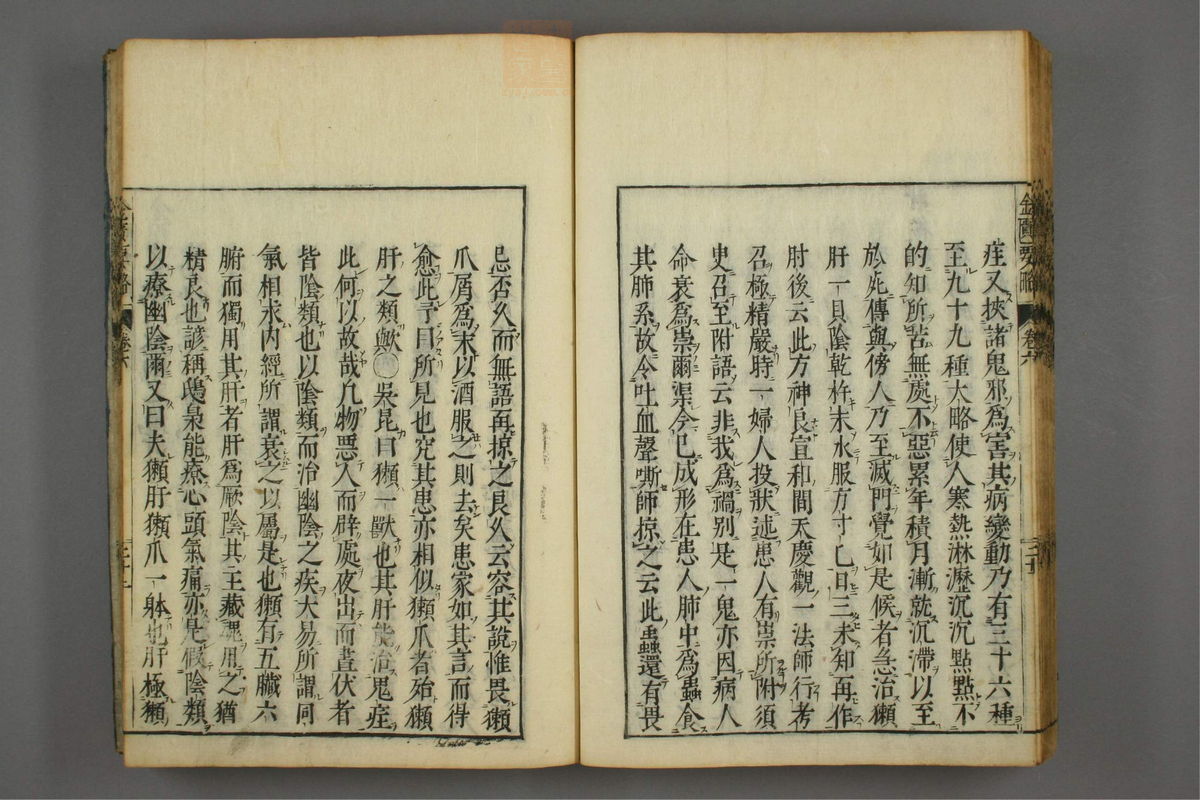 金匱要略 卷六
疰又挾諸鬼邪爲害其病變動乃有三十六種
至九十九種大略使人寒熱淋瀝沉沉點點不
的知所苦無處不惡累年積月漸就沉滯以至
於死傳與傍人乃至滅門覺如是候者急治獺
肝一具陰乾杵末水服方寸匕日三未知再作
肘後云此方神良宣和間天慶觀一法師行考
召極精嚴時一婦人投狀述患人有祟所附須
史召至附語云非我爲禍別是一鬼亦因病人
命衰爲祟爾渠今已成形在患人肺中爲蟲食
其肺系故令吐血聲嘶師掠之云此蟲還有畏
忌否久而無語再掠之良久云容其說惟畏獺
爪屑爲末以酒服之則去矣患家如其言而得
愈此予曰所見也究其患亦相似獺爪者始獺
肝之類歟○吳昆曰獺一獸也其肝能治鬼疰
此何以故哉凡物惡人而辟處夜出而晝伏者
皆陰類也以陰類而治幽陰之疾大易所謂同
氣相求內經所謂衰之以屬是也獺有五臟六
腑而獨用其肝者肝爲厥陰其主藏魂用之猶
精良也諺稱鴟梟能療心頭氣痛亦是假陰類
以療幽陰爾又曰夫獺肝獺爪一躰也肝極獺